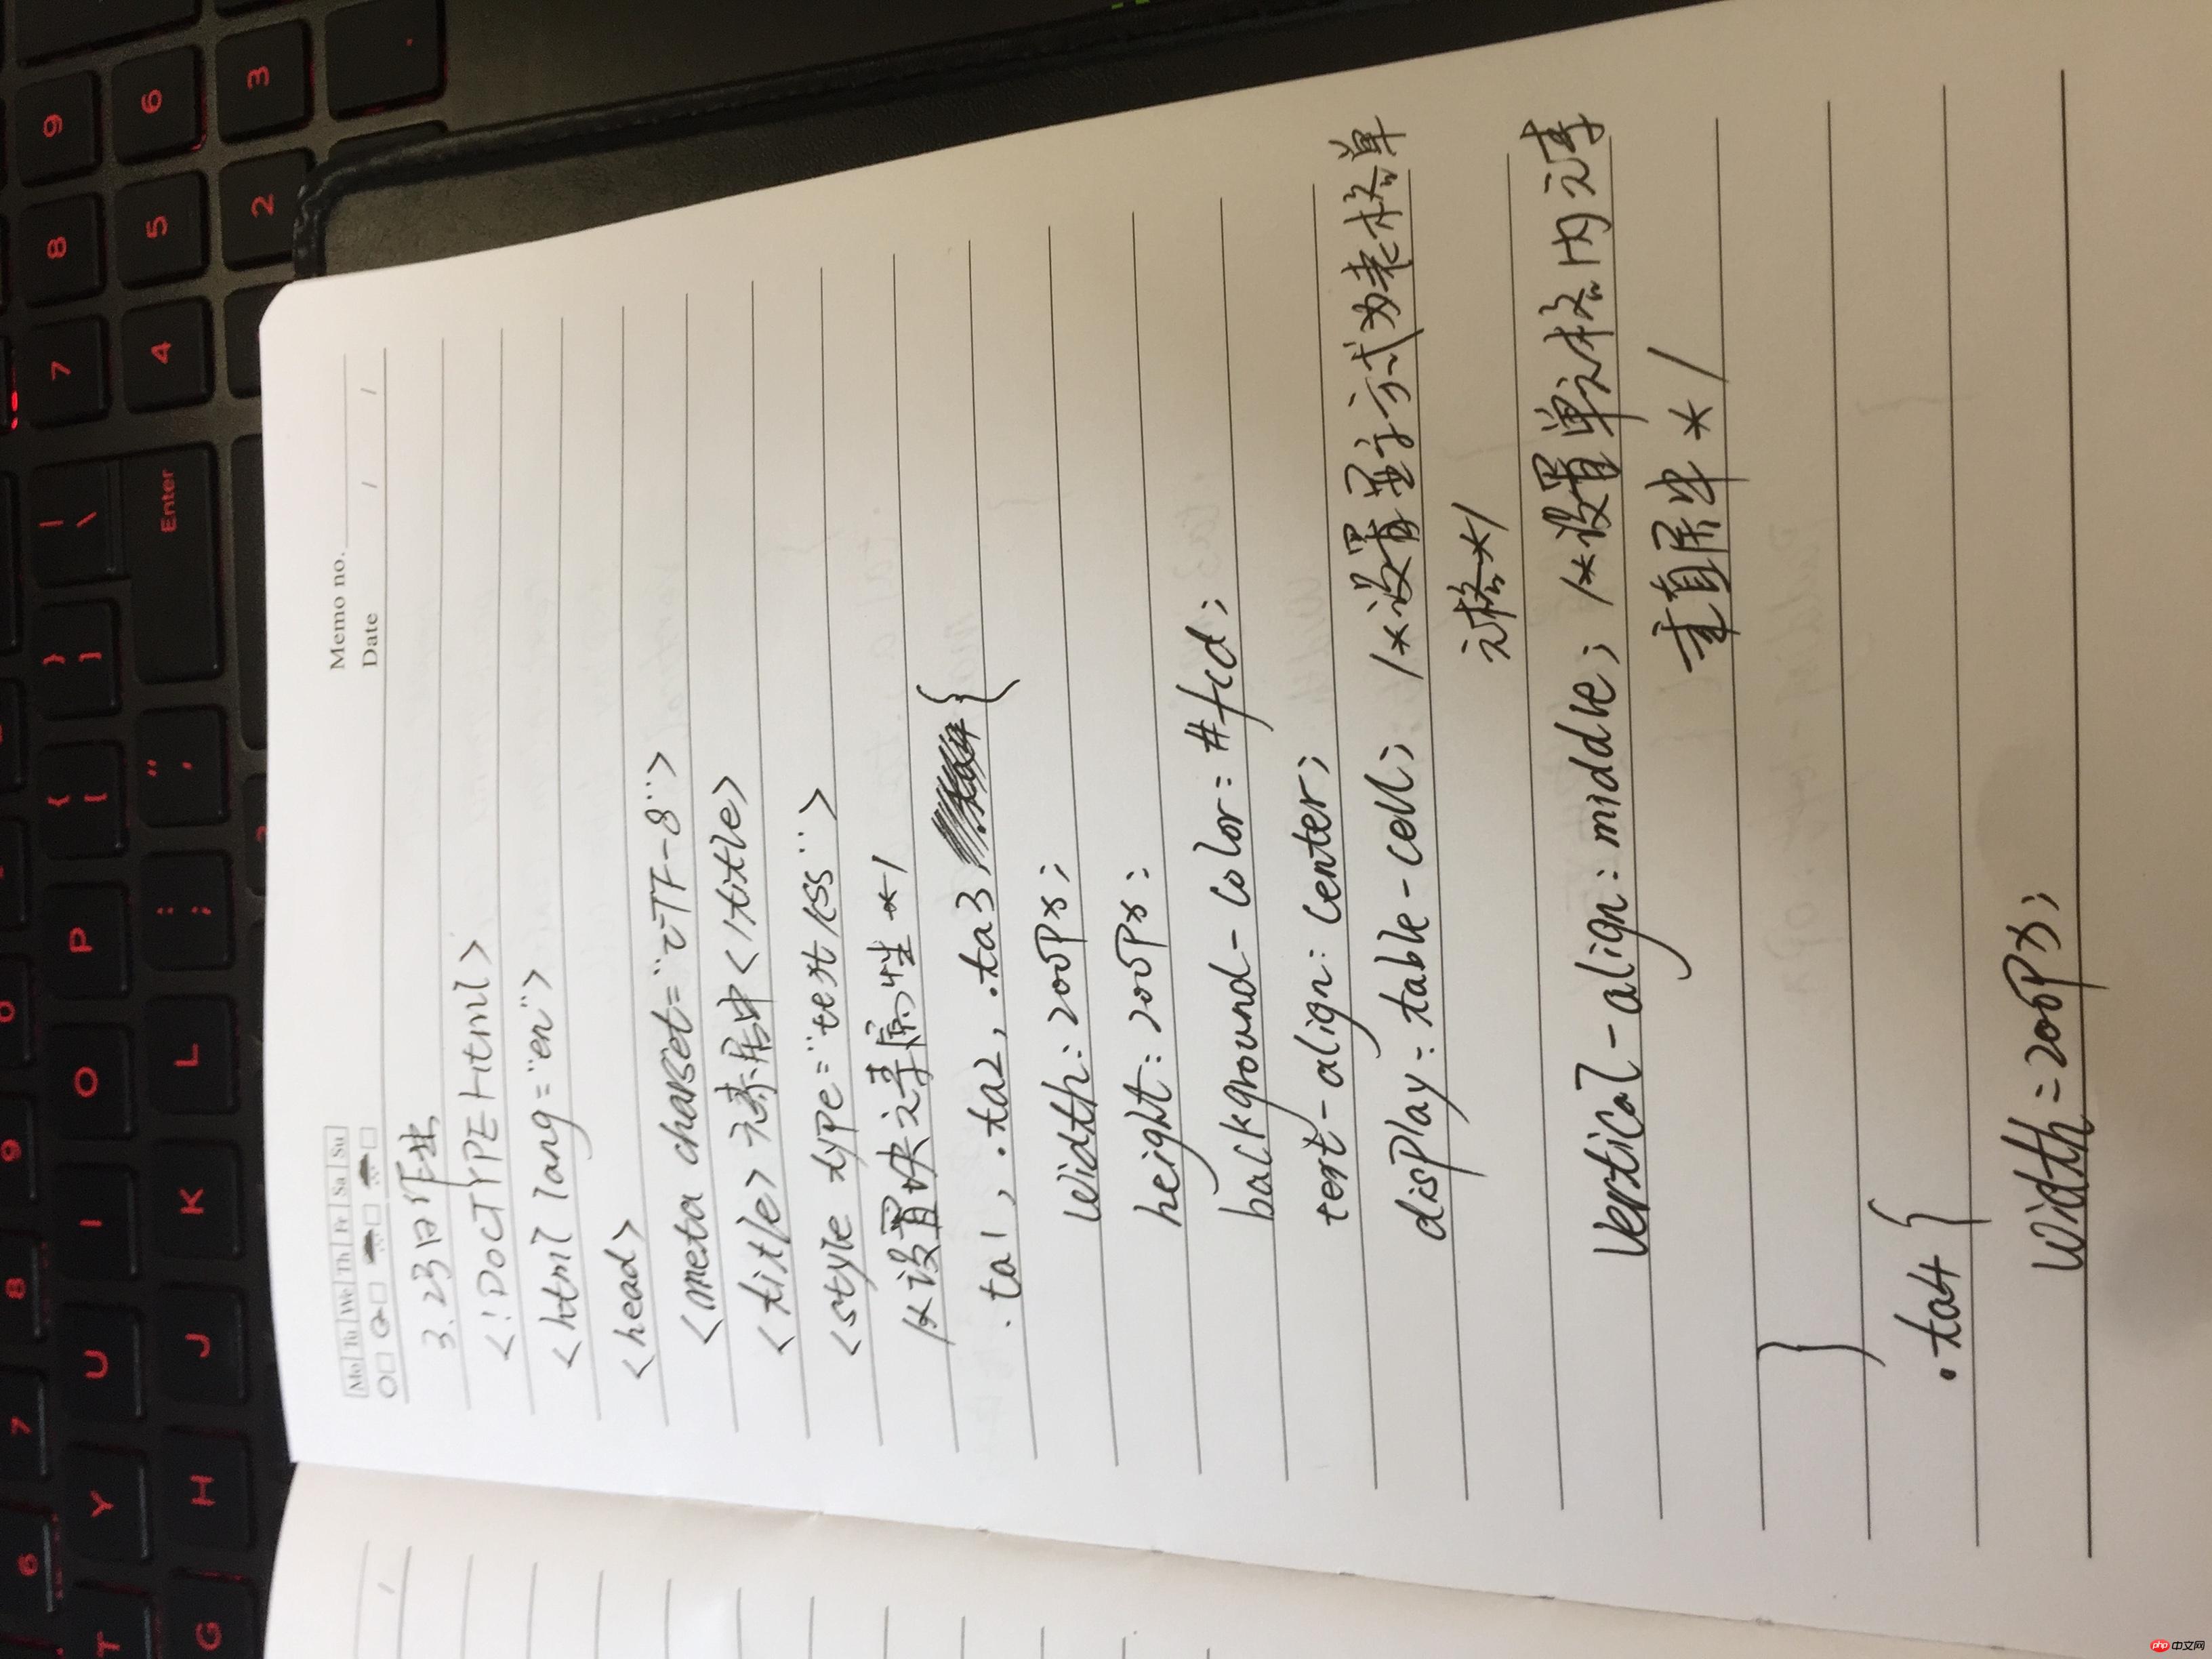 Memo no.
Mo Tu We Th Fr Sa Su
Date / /
3.23日作业
<!DOCTYPE html>
<html lang="en">
<head>
<meta charset="UTF-8">
<title>元素居中</title>
<style type="text/css">
/*设置块元素属性*/
.ta1, .ta2, .ta3, {
width:200px;
height:200px;
background-color:#fcd;
text-align:center;
display:table-cell; /*设置显示方式为表格单
元格*/
vertical-align:middle; /*设置单元格内元素
垂直居中*/
}
.ta4 {
width:200px;
9 6 3 .
8 5 2
7 4
| \ Enter
} ]
{ [ " '
P : ;
0 O L
9 I K
8 U J
7 Y H
6 T G
php 中文网